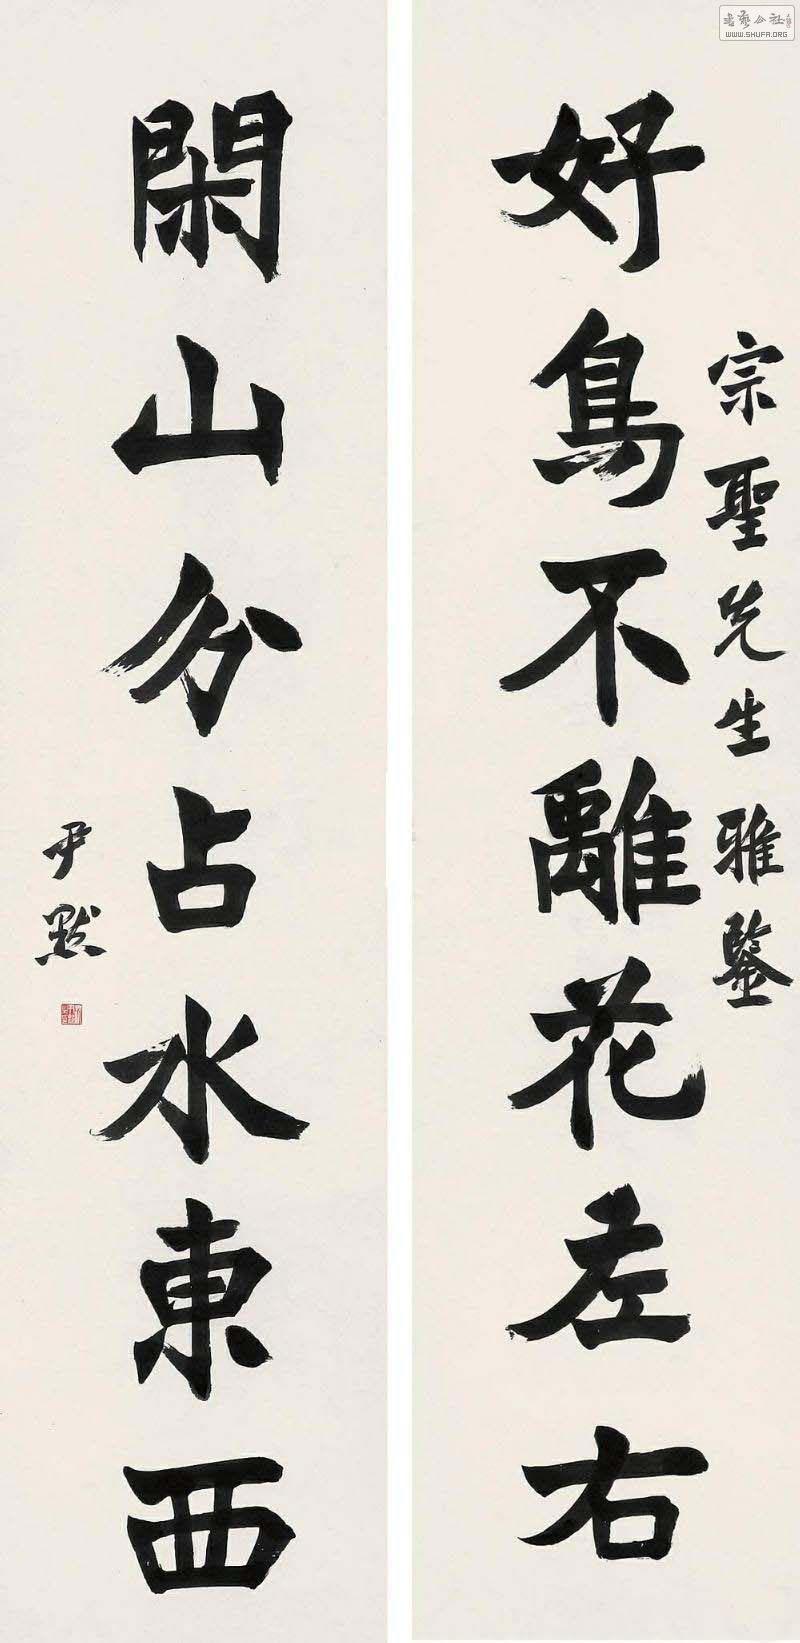 好鳥不離花左右
宗聖先生雅鑒
閑山分占水東西
尹默
書藝公社
WWW.SHUFA.ORG